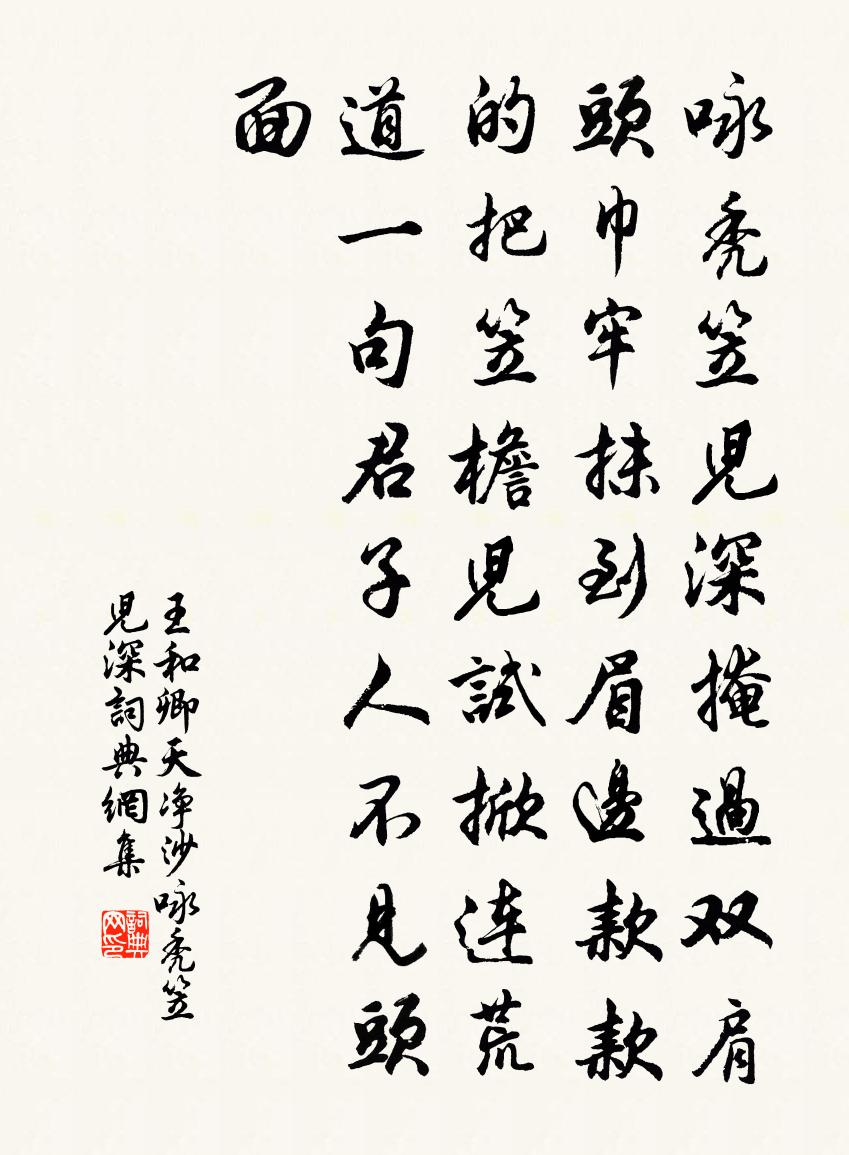 咏秃笠児深掩過双肩
頭巾牢抹到眉邊款款
的把笠檐児試掀連荒
道一句君子人不見頭
面
王和卿天净沙咏秃笠
児深詞典網集
詞典网印